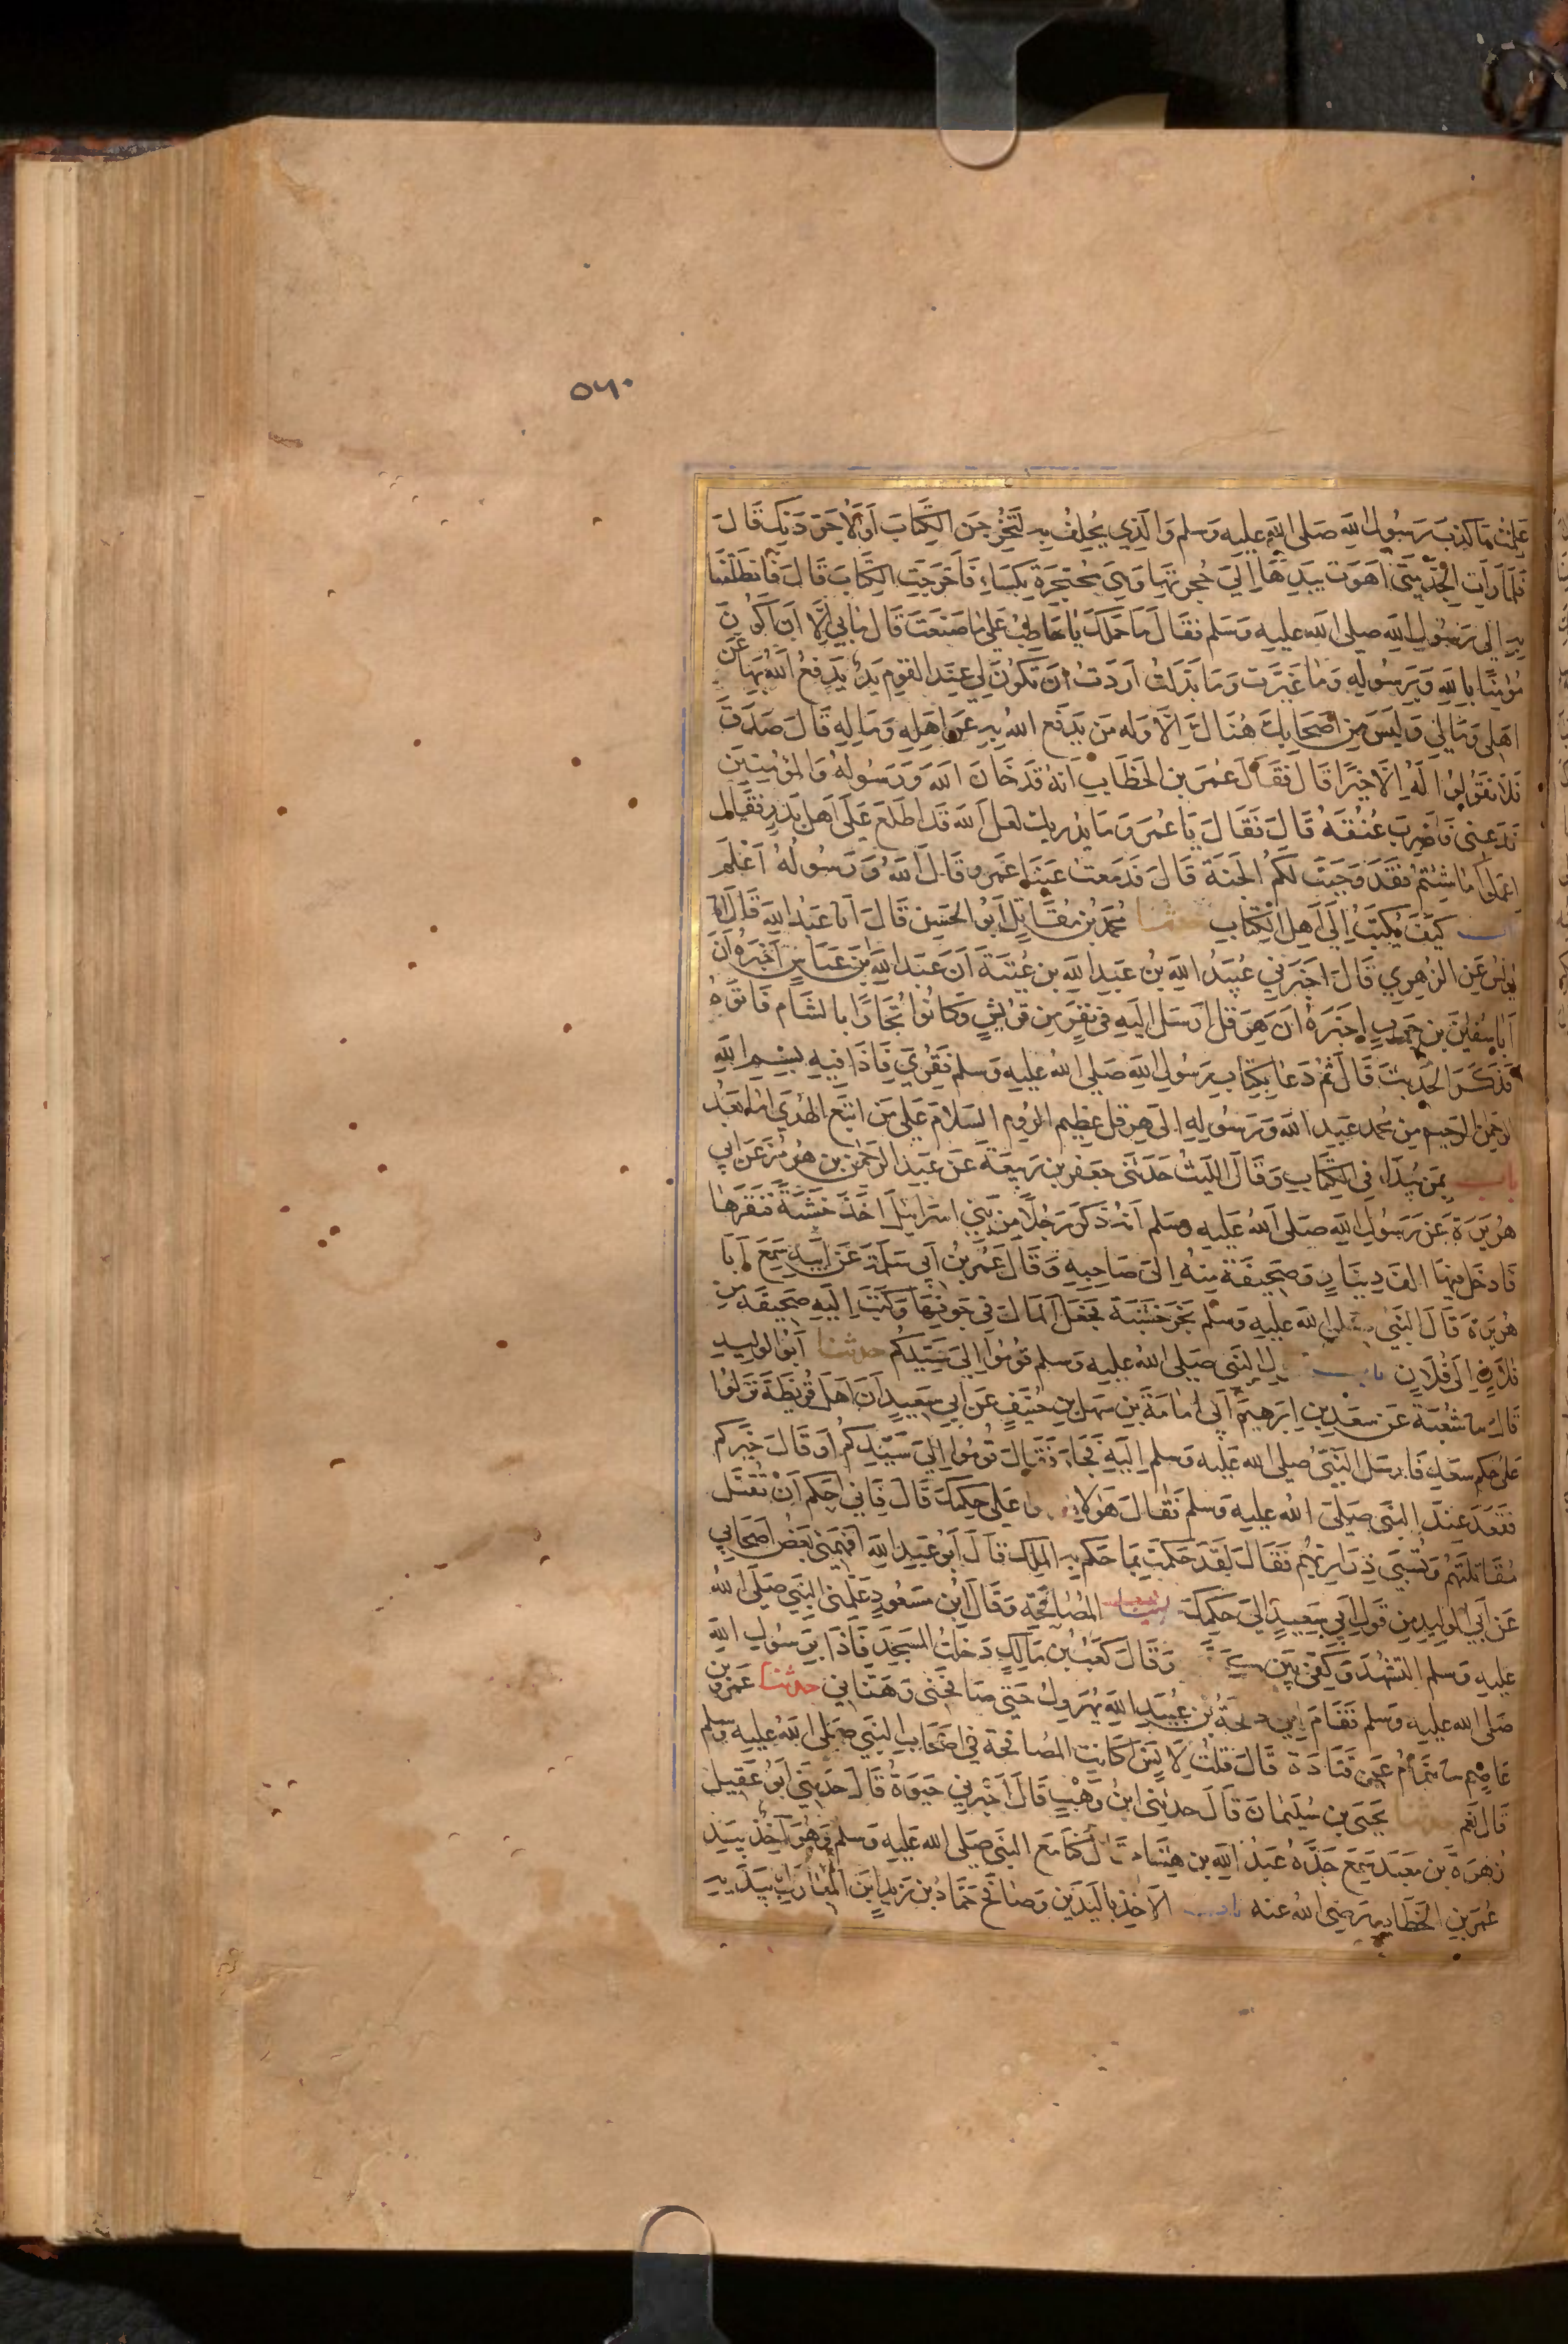 ٥٦٠
عَلِمْتُ مَا كَذَبَ رَسُولُ اللهِ صَلى اللهُ عليهِ وَسلم وَالَّذِي يُحْلَفُ بِهِ لَتُخْرِجِنَ الكِتَابَ أَوْ لَأُجَرِّدَنَّكِ قَالَ
فَلَمَّا رَأَتِ الجِدَّ مِنِّى أَهْوَتْ بِيَدِهَا إِلَى حُجْزَتِهَا وَهِيَ مُحْتَجِزَةٌ بِكِسَاءٍ فَأَخْرَجَتِ الكِتَابَ قَالَ فَانْطَلَقْنَا
بِهِ إِلى رَسُولِ اللهِ صلى الله عليه وَسَلم فَقَالَ مَا حَمَلَكَ يَا حَاطِبُ عَلى مَا صَنَعْتَ قَالَ مَا بِي إِلَّا أَنْ أَكُونَ
مُؤْمِنًا بِاللهِ وَبِرَسُولِهِ وَمَا غَيَّرْتُ وَمَا بَدَّلْتُ أَرَدْتُ أَنْ تَكُونَ لِي عِنْدَ القَوْمِ يَدٌ يَدْفَعُ اللهُ بِهَا عَنْ
أَهْلِي وَمَالِي وَلَيْسَ مِنْ أَصْحَابِكَ هُنَاكَ إِلَّا وَلَهُ مَنْ يَدْفَعُ اللهُ بِهِ عَنْ أَهْلِهِ وَمَالِهِ قَالَ صَدَقَ
فَلَا تَقُولُوا لَهُ إِلَّا خَيْرًا قَالَ فَقَالَ عُمَرُ بن الخَطَّابِ أَنَّهُ قَدْ خَانَ اللهَ وَرَسُولَهُ وَالمُؤْمِنِينَ
فَدَعْنِى فَأَضْرِبَ عُنُقَهُ قَالَ فَقَالَ يَا عُمَرُ وَمَا يُدْرِيكَ لَعَلَّ اللهَ قَدْ اطَّلَعَ عَلَى أَهْلِ بَدْرٍ فَقَالَ
اعْمَلُوا مَا شِئْتُمْ فَقَدْ وَجَبَتْ لَكُمُ الجَنَّةُ قَالَ فَدَمَعَتْ عَيْنَا عُمَرَ وقَالَ اللهُ وَرَسُولُهُ أَعْلَمُ
كَيْفَ يُكْتَبُ إِلَى أَهْلِ الكِتَابِ مُحَمَّدُ بْنُ مُقَاتِلٍ أَبُو الحَسَنِ قَالَ أَنَا عَبْدُ اللهِ قَالَ أَنَا
يُونُسُ عَنِ الزُّهْرِيِّ قَالَ أَخْبَرَنِي عُبَيْدُ اللهِ بْنُ عَبْدِ اللهِ بن عُتْبَةَ أَنَّ عَبْدَ اللهِ بْنَ عَبَّاسٍ أَخْبَرَهُ أَنَّ
أَبَا سُفْيَانَ بن حَرْبٍ أَخْبَرَهُ أَنَّ هِرَقْلَ أَرْسَلَ إِلَيْهِ فِي نَفَرٍ مِنْ قُرَيْشٍ وَكَانُوا تُجَّارًا بِالشَّامِ فَأَتَوْهُ
فَذَكَرَ الحَدِيثَ قَالَ ثُمَّ دَعَا بِكِتَابِ رَسُولِ اللهِ صَلى اللهُ عليهِ وَسلم فَقُرِئَ فَإِذَا فِيهِ بِسْمِ اللهِ
الرَّحْمَنِ الرَّحِيمِ مِنْ مُحَمَّدٍ عَبْدِ اللهِ وَرَسُولِهِ إِلَى هِرَقْلَ عَظِيمِ الرُّومِ السَّلَامُ عَلَى مَنِ اتَّبَعَ الهُدَى أَمَّا بَعْدُ
باب بِمَنْ يُبْدَأُ فِي الكِتَابِ وَقَالَ اللَّيْثُ حَدَّثَنِي جَعْفَرُ بن رَبِيعَةَ عَنْ عَبْدِ الرَّحْمَنِ بن هُرْمُزَ عَنْ أَبِي
هُرَيْرَةَ عَنْ رَسُولِ اللهِ صَلَّى اللهُ عَلَيهِ وسَلم أَنَّهُ ذَكَرَ رَجُلًا مِنْ بَنِي إِسْرَائِيلَ أَخَذَ خَشَبَةً فَنَقَرَهَا
فَأَدْخَلَ فِيهَا أَلْفَ دِينَارٍ وَصَحِيفَةً مِنْهُ إِلَى صَاحِبِهِ وَقَالَ عُمَرُ بْنُ أَبِي سَلَمَةَ عَنْ أَبِيهِ سَمِعَ أَبَا
هُرَيْرَةَ قَالَ النَّبِيُّ صَلى الله عليهِ وَسلم نَجَرَ خَشَبَةً فَجَعَلَ المَالَ فِي جَوْفِهَا وَكَتَبَ إِلَيْهِ صَحِيفَةً مِنْ
فُلَانٍ إِلَى فُلَانٍ باب النَّبِي صَلى اللهُ عليهِ وَسلم قُومُوا إِلَى سَيِّدِكُمْ حدثنا أَبُو الوَلِيدِ
قَالَ سا شُعْبَةُ عَنْ سَعْدِ بنِ إِبْرَهِيمَ أَبِي أُمَامَةَ بنِ سَهْلِ بنِ حُنَيْفٍ عَنْ أَبِي سَعِيدٍ أَنَّ أَهْلَ قُرَيْظَةَ نَزَلُوا
عَلى حُكْمِ سَعْدٍ فَأَرْسَلَ النَّبِيُّ صلى الله عليه وسلم إِلَيْهِ فَجَاءَ فَقَالَ قُومُوا إِلَى سَيِّدِكُمْ أَوْ قَالَ خَيْرِكُمْ
فَقَعَدَ عِنْدَ النَّبِيِّ صَلَّى اللهُ عليهِ وَسلم فَقَالَ هَؤُلَاءِ عَلَى حُكْمِكَ قَالَ فَإِنِّي أَحْكُمُ أَنْ تُقْتَلَ
مُقَاتِلَتُهُمْ وَتُسْبَى ذَرَارِيُّهُمْ فَقَالَ لَقَدْ حَكَمْتَ بِمَا حَكَمَ بِهِ المَلِكُ قَالَ أَبُو عَبْدِ اللهِ أَفْهَمَنِي بَعْضُ أَصْحَابِي
عَنْ أَبِي الوَلِيدِ مِنْ قَوْلِ أَبِي سَعِيدٍ إِلَى حُكْمِكَ المُصَافَحَةِ وَقَالَ ابْنُ مَسْعُودٍ عَلَّمَنِي النَّبِيُّ صَلَّى اللهُ
عليهِ وَسلم التَّشَهُّدَ وَكَفِّي بَيْنَ وَقَالَ كَعْبُ بْنُ مَالِكٍ دَخَلْتُ المَسْجِدَ فَإِذَا بِرَسُولِ اللهِ
صَلى الله عليهِ وَسلم فَقَامَ إِلَيَّ طلحَةُ بْنُ عُبَيْدِ اللهِ يُهَرْوِلُ حَتَّى صَافَحَنِي وَهَنَّأَنِي حدثنا عَمْرُو بن
عَاصِمٍ سا هَمَّامٌ عَنْ قَتَادَةَ قَالَ قُلْتُ لِأَنَسٍ أَكَانَتِ المُصَافَحَةُ فِي أَصْحَابِ النَّبِيِّ صَلى اللهُ عليهِ وسلم
قَالَ نَعَم يَحْيَى بن سُلَيْمَانَ قَالَ حَدثَنِي ابْنُ وَهْبٍ قَالَ أَخْبَرَنِي حَيْوَةُ قَالَ حَدثَنِي أَبُو عَقِيلٍ
زُهْرَةُ بن مَعْبَدٍ سَمِعَ جَدَّهُ عَبْدَ اللهِ بن هِشَام قَالَ كُنَّا مَعَ النَّبِيِّ صَلى الله عَليهِ وسلم وَهُوَ آخِذٌ بِيَدِ
عُمَرَ بنِ الخَطَّابِ رَضِيَ اللهُ عنه باب الأَخْذِ بِاليَدَيْنِ وَصَافَحَ حَمَّادُ بن زَيْدٍ ابْنَ المُبَارَكِ بِيَدَيْهِ